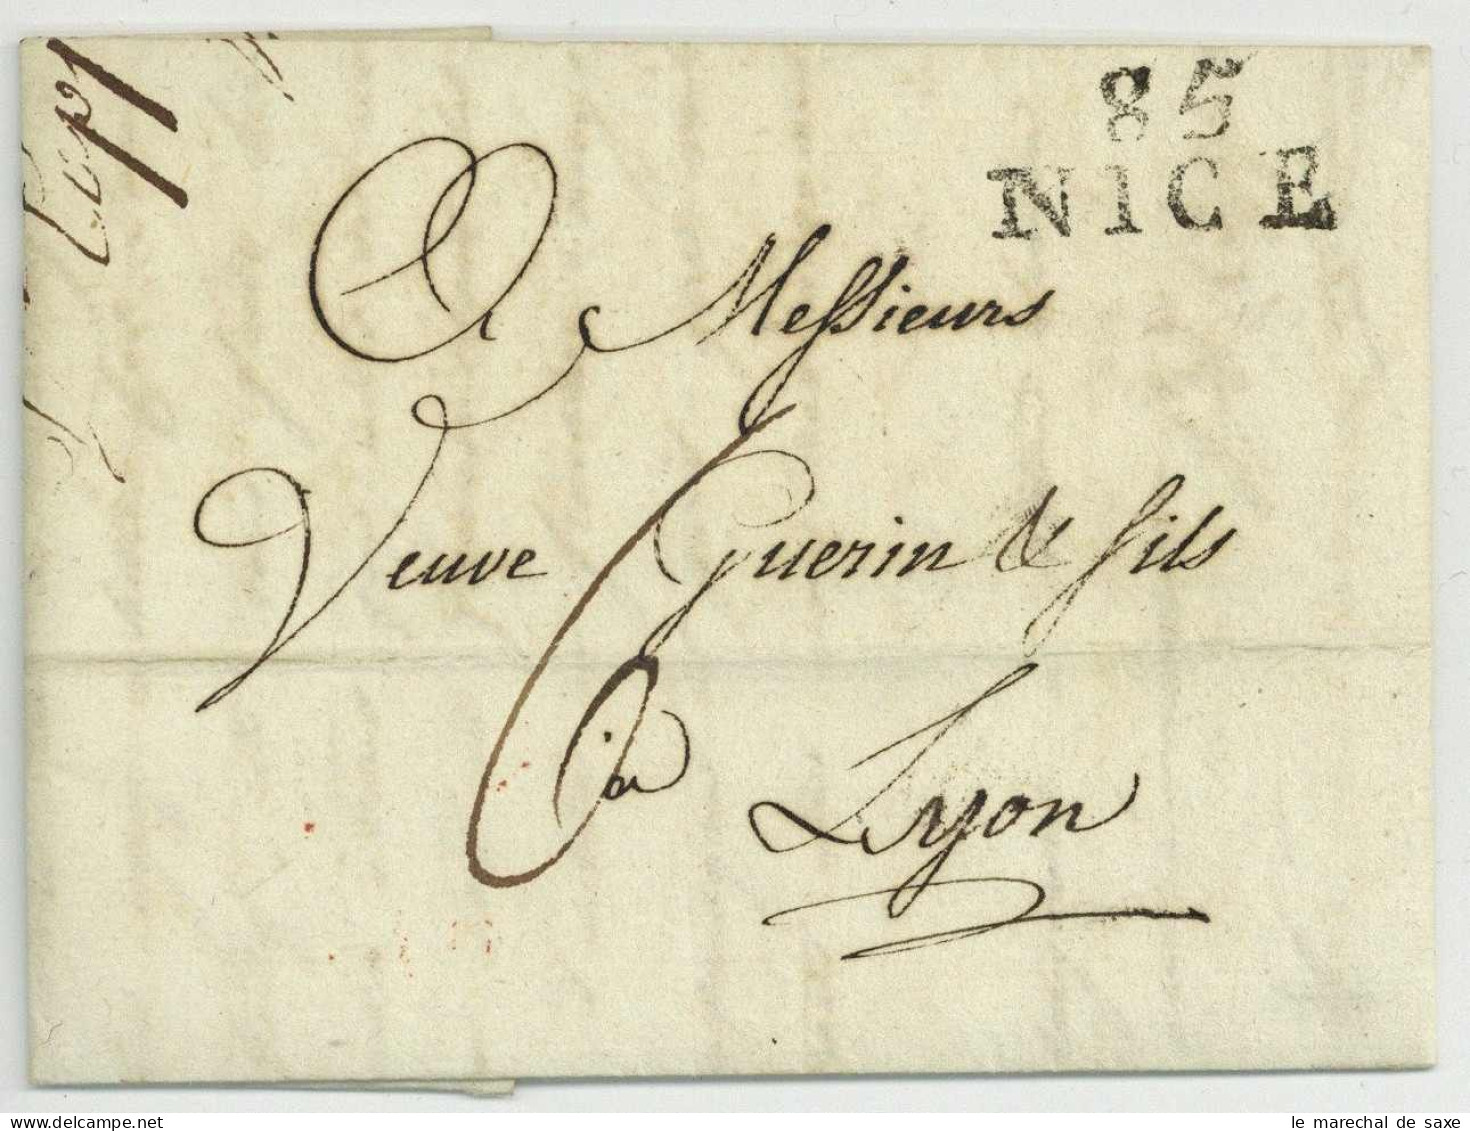 85
NICE
A Messieurs
Veuve Guerin & fils
6
à
Lyon
le marechal de saxe